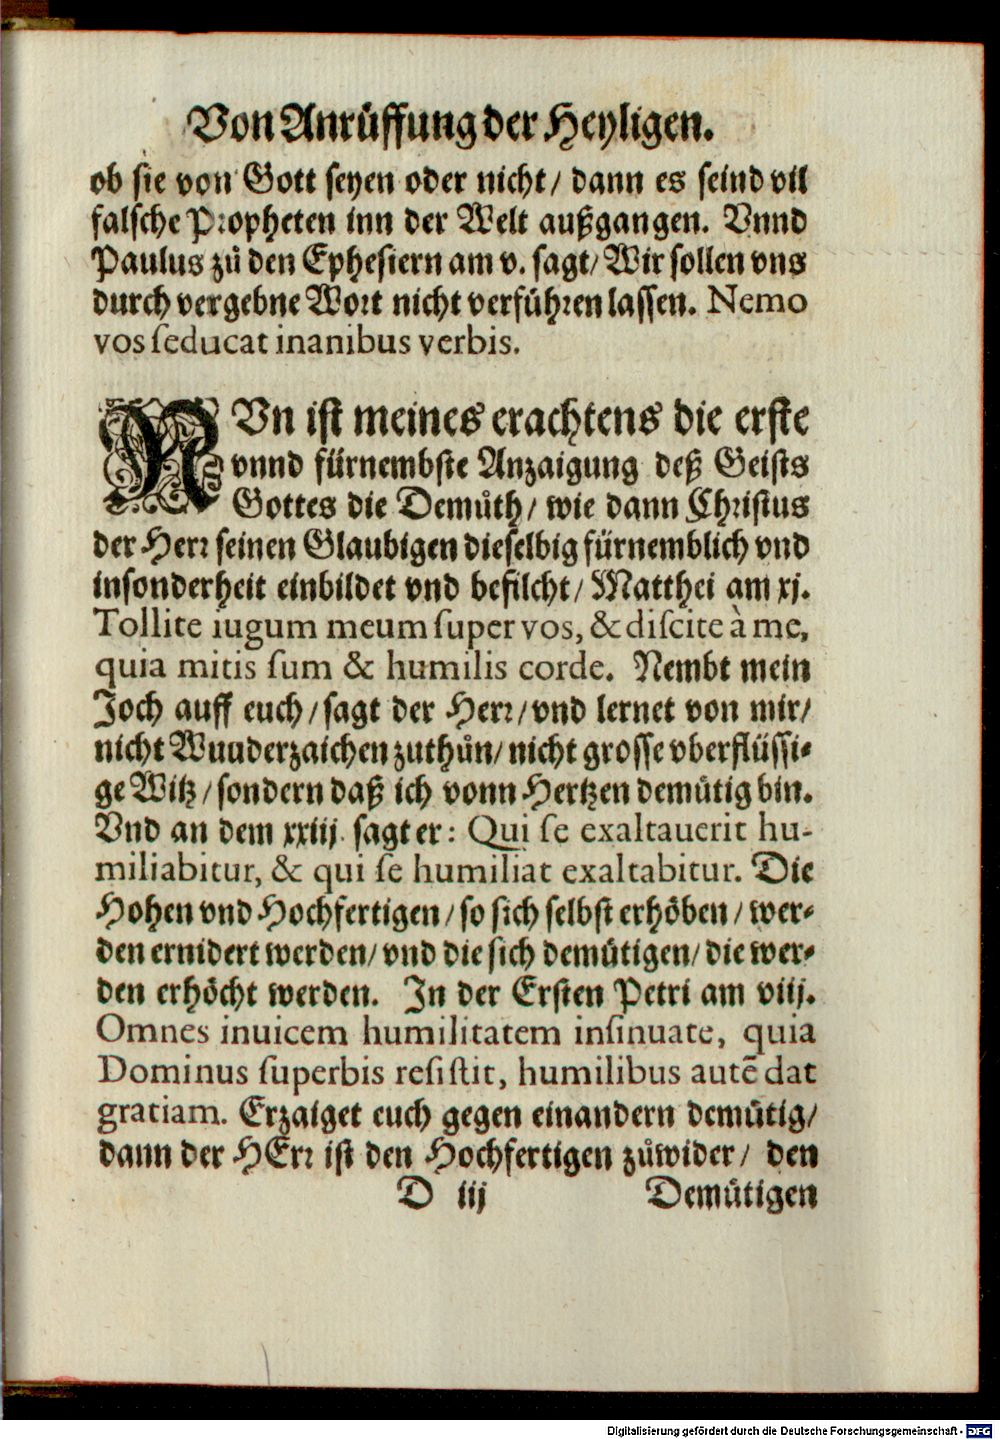 Von Anrůffung der Heyligen.
ob sie von Gott seyen oder nicht / dann es seind vil
falsche Propheten inn der Welt außgangen. Vnnd
Paulus zů den Ephesiern am v. sagt / Wir sollen vns
durch vergebne Wort nicht verführen lassen. Nemo
vos ſeducat inanibus verbis.
NVn ist meines erachtens die erste
vnnd fürnembste Anzaigung deß Geists
Gottes die Demůth / wie dann Christus
der Herr seinen Glaubigen dieselbig fürnemblich vnd
insonderheit einbildet vnd befilcht / Matthei am xj.
Tollite iugum meum ſuper vos, & diſcite à me,
quia mitis ſum & humilis corde. Nembt mein
Joch auff euch / sagt der Herr / vnd lernet von mir /
nicht Wunderzaichen zuthůn / nicht grosse vberflüssi⸗
ge Witz / sondern daß ich vonn Hertzen demütig bin.
Vnd an dem xxiij. sagt er: Qui ſe exaltauerit hu-
miliabitur, & qui ſe humiliat exaltabitur. Die
Hohen vnd Hochfertigen / so sich selbst erhöben / wer⸗
den ernidert werden / vnd die sich demütigen / die wer⸗
den erhöcht werden. In der Ersten Petri am viij.
Omnes inuicem humilitatem inſinuate, quia
Dominus ſuperbis reſiſtit, humilibus autē dat
gratiam. Erzaiget euch gegen einandern demütig /
dann der HErr ist den Hochfertigen zůwider / den
D iij Demütigen
Digitalisierung gefördert durch die Deutsche Forschungsgemeinschaft - DFG